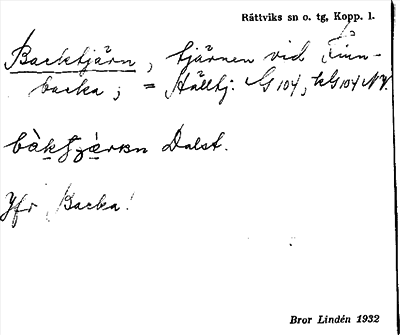 Rättviks sn o. tg, Kopp. l.
Backtjärn, tjärnen vid Finn-
backa; = Hälltj: G 104, kG 104 NV.
Dalst.
Jfr Backa!
Bror Lindén 1932